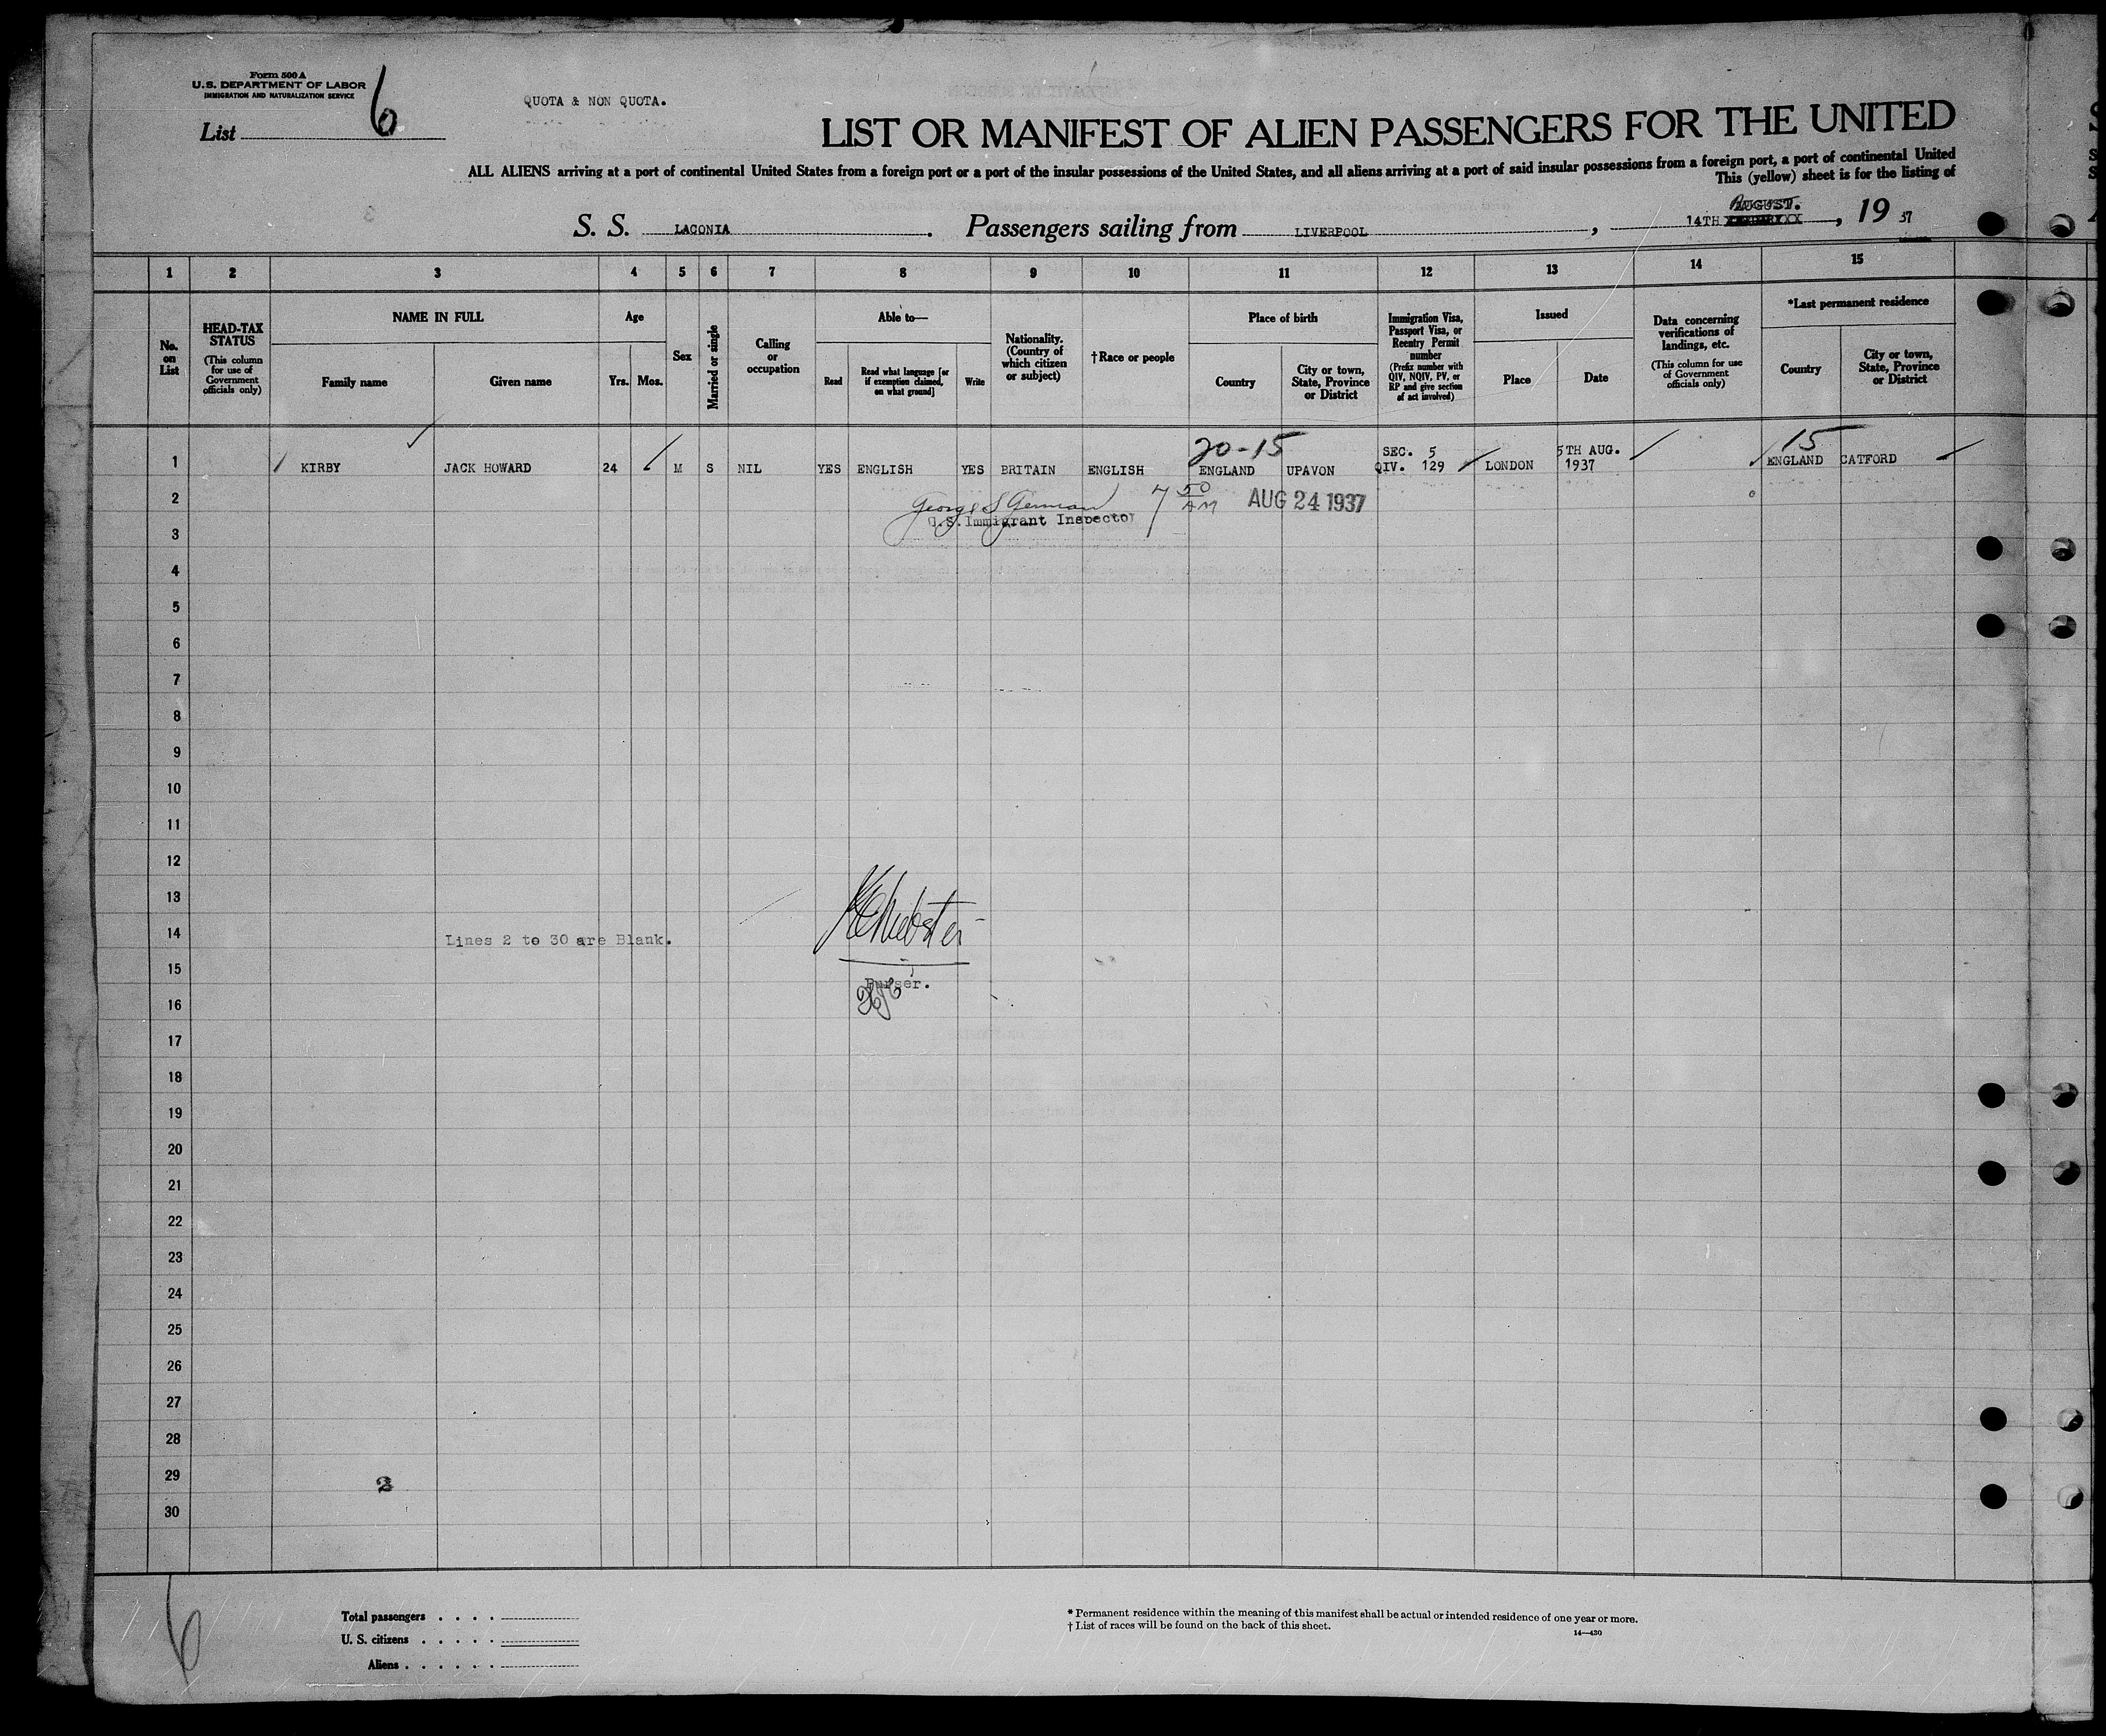 Form 500 A
U.S. DEPARTMENT OF LABOR
IMMIGRATION AND NATURALIZATION SERVICE
List 6
QUOTA & NON QUOTA.
LIST OR MANIFEST OF ALIEN PASSENGERS FOR THE UNITED
ALL ALIENS arriving at a port of continental United States from a foreign port or a port of the insular possessions of the United States, and all aliens arriving at a port of said insular possessions from a foreign port, a port of continental United
This (yellow) sheet is for the listing of
S. S. LACONIA. Passengers sailing from LIVERPOOL, 14TH AUGUST., 19 37
1 2 3 4 5 6 7 8 9 10 11 12 13 14 15
No. on List
HEAD-TAX STATUS
(This column for use of Government officials only)
NAME IN FULL
Family name
Given name
Age
Yrs.
Mos.
Sex
Married or single
Calling or occupation
Able to—
Read
Read what language [or if exemption claimed, on what ground]
Write
Nationality. (Country of which citizen or subject)
†Race or people
Place of birth
Country
City or town, State, Province or District
Immigration Visa, Passport Visa, or Reentry Permit number
(Prefix number with QIV, NQIV, PV, or RP and give section of act involved)
Issued
Place
Date
Data concerning verifications of landings, etc.
(This column for use of Government officials only)
*Last permanent residence
Country
City or town, State, Province or District
20-15
15
SEC. 5
5TH AUG.
1 KIRBY JACK HOWARD 24 M S NIL YES ENGLISH YES BRITAIN ENGLISH ENGLAND UPAVON QIV. 129 LONDON 1937 ENGLAND CATFORD
2 George S German 7 50 AM AUG 24 1937
U.S. Immigrant Inspector
3
4
5
6
7
8
9
10
11
12
13
14 Lines 2 to 30 are Blank. Webster
15
Purser.
16
17
18
19
20
21
22
23
24
25
26
27
28
29 2
30
6
Total passengers . . . .
U. S. citizens . . . . .
Aliens . . . . . .
* Permanent residence within the meaning of this manifest shall be actual or intended residence of one year or more.
† List of races will be found on the back of this sheet.
14—430